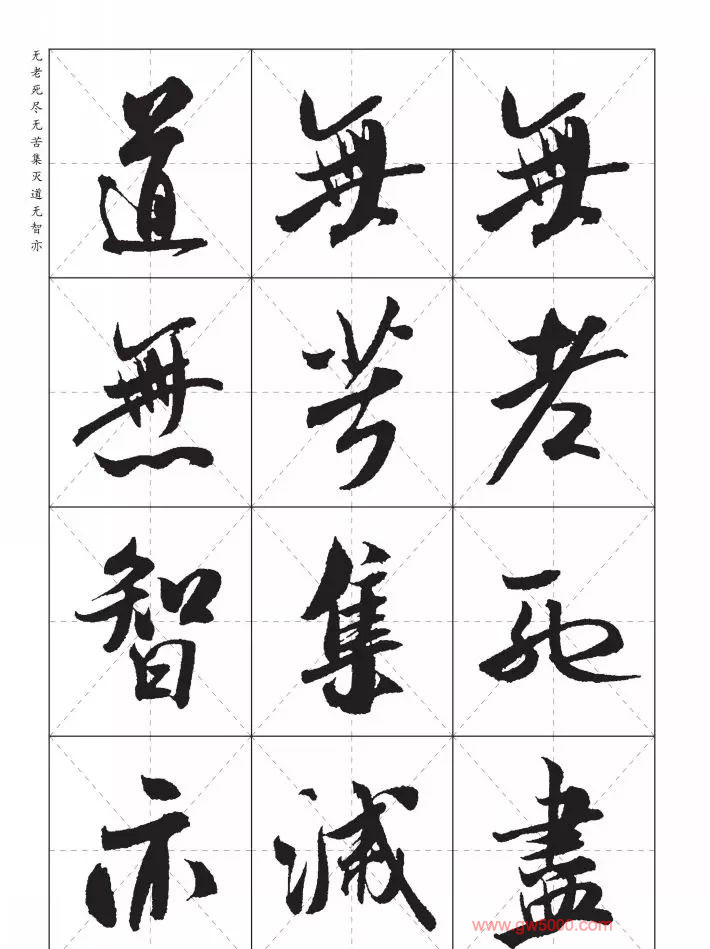 无老死尽无苦集灭道无智亦
無老死盡
無苦集滅
道無智亦
www.gw5000.com